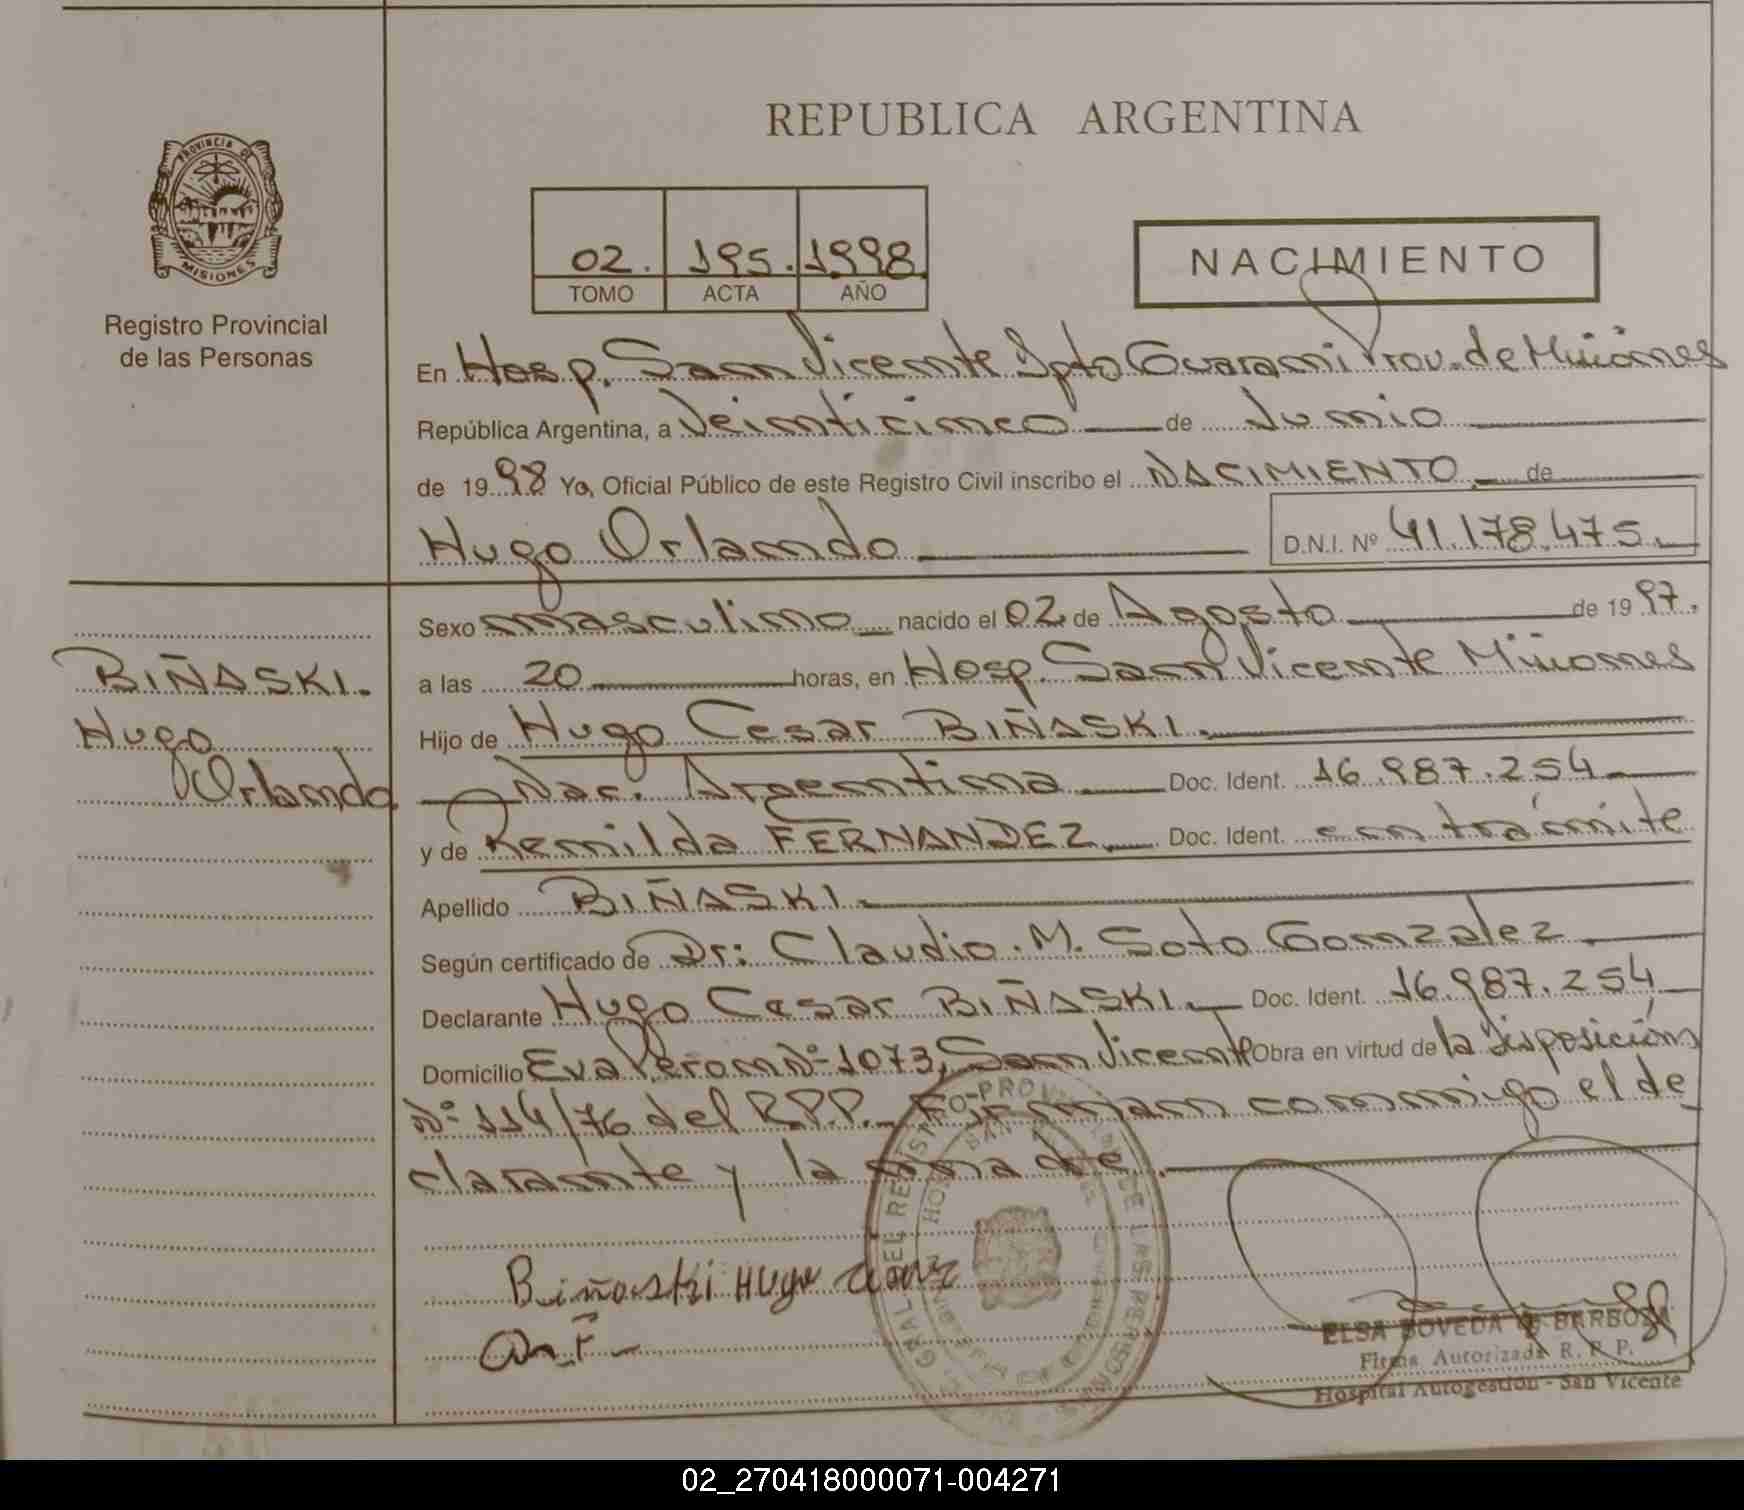 REPUBLICA ARGENTINA
PROVINCIA DE
MISIONES
Registro Provincial
de las Personas
02. 195. 1998.
TOMO ACTA AÑO
NACIMIENTO
En Hosp. San Vicente Dpto Guarani Prov. de Misiones
República Argentina, a Veinticinco de Junio
de 1998 Yo, Oficial Público de este Registro Civil inscribo el NACIMIENTO de
Hugo Orlando D.N.I. Nº 41.178.475
BIÑASKI.
Hugo
Orlando
Sexo masculino nacido el 02 de Agosto de 1997.
a las 20 horas, en Hosp. San Vicente Misiones
Hijo de Hugo Cesar BIÑASKI.
Nac. Argentina Doc. Ident. 16.987.254
y de Remilda FERNANDEZ Doc. Ident. en trámite
Apellido BIÑASKI
Según certificado de Dr: Claudio M. Soto Gonzalez
Declarante Hugo Cesar BIÑASKI. Doc. Ident. 16.987.254
Domicilio Eva Peron Nº 1073, San Vicente Obra en virtud de la disposición
Nº 114/76 del R.P.P. Firman conmigo el de
clarante y la madre.
Biñaski Hugo
ELSA BOVEDA D BARBOZA
Firma Autorizada R. P. P.
Hospital Autogestion - San Vicente
02_270418000071-004271